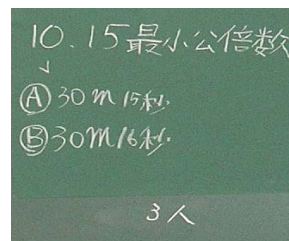 10.15最小公倍数
Ⓐ30m 15秒.
Ⓑ30m 16秒.
3人